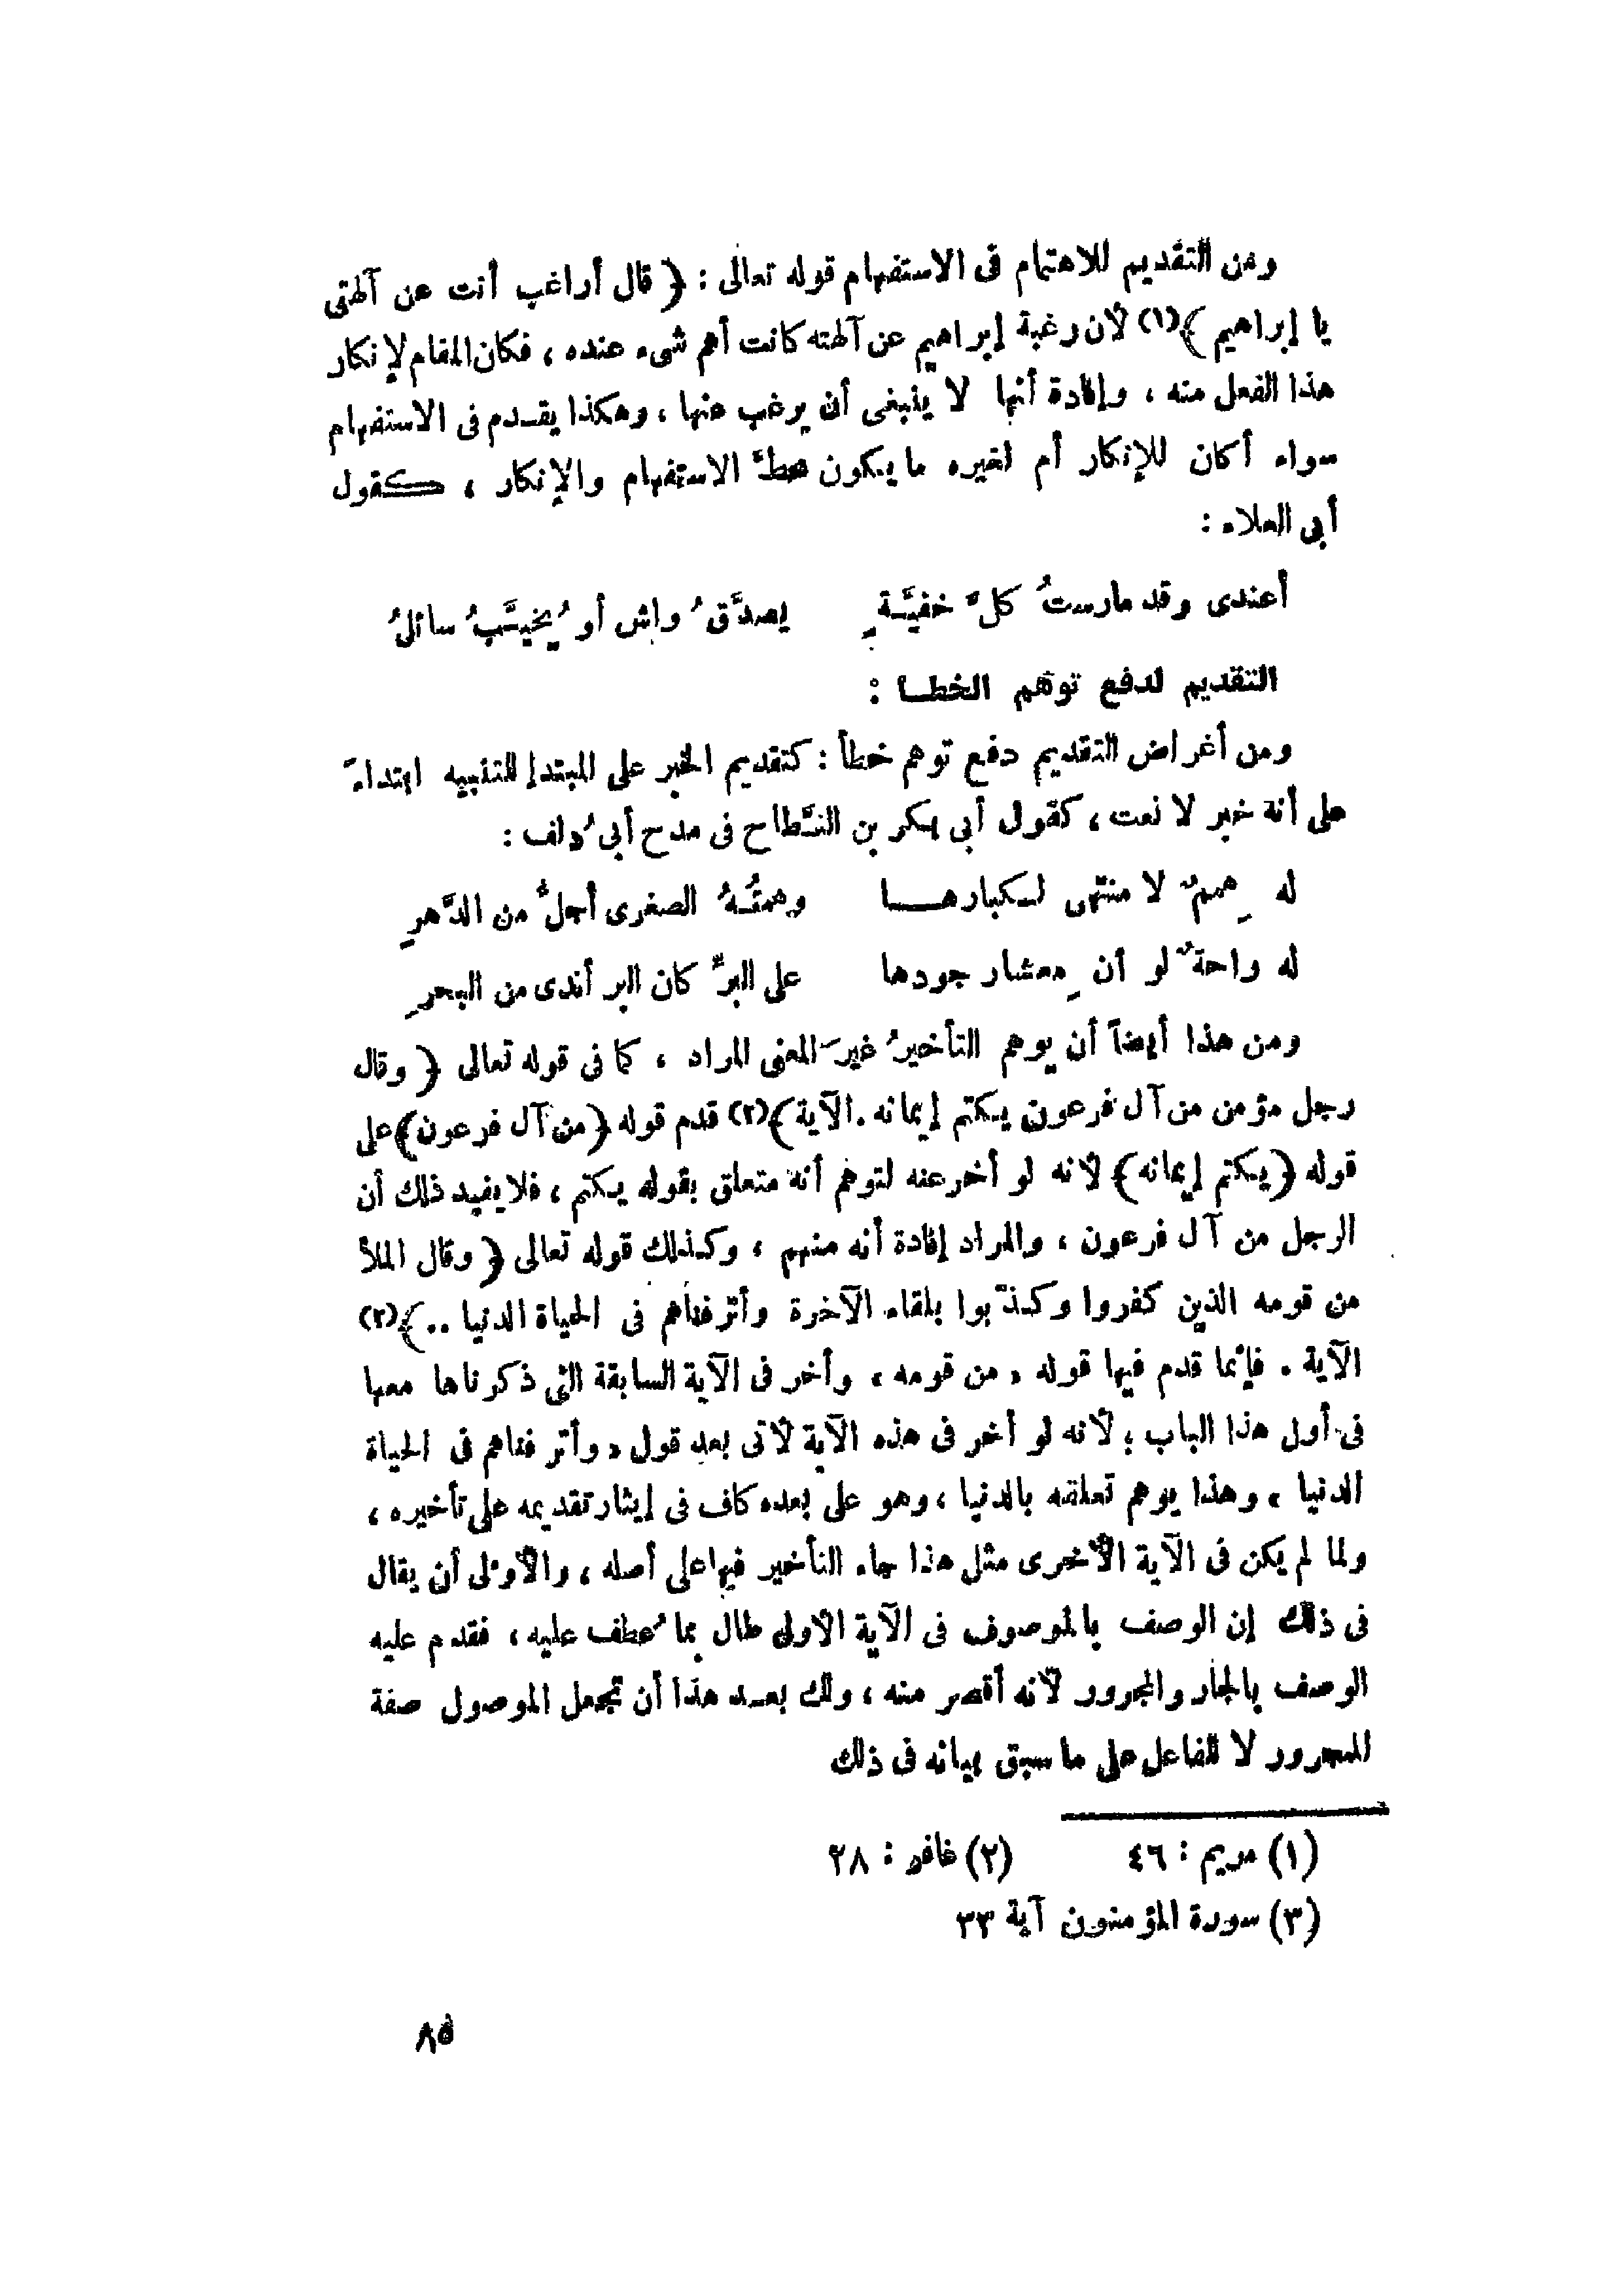 ومن التقديم للاهتمام فى الاستفهام قوله تعالى : ﴿ قال أراغب أنت عن آلهتى
يا إبراهيم ﴾(١) لأن رغبة إبراهيم عن آلهته كانت أهم شىء عنده ، فكان المقام لإنكار
هذا الفعل منه ، وإفادة أنها لا ينبغى أن يرغب عنها ، وهكذا يقدم فى الاستفهام
سواء أكان للإنكار أم لغيره ما يكون محطَّ الاستفهام والإنكار ، كقول
أبى العلاء :
أعندى وقد مارستُ كلَّ خفيَّةٍ يصدَّقُ واشٍ أو يُخيَّبُ سائلُ
التقديم لدفع توهم الخطأ :
ومن أغراض التقديم دفع توهم خطأ : كتقديم الخبر على المبتدإ للتنبيه ابتداءً
على أنه خبر لا نعت ، كقول أبى بكر بن النَّطاح فى مدح أبى دُلف :
له هِممٌ لا منتهى لكبارها وهمتُهُ الصغرى أجلُّ من الدَّهرِ
له راحةٌ لو أن مِعشار جودها على البرِّ كان البر أندى من البحرِ
ومن هذا أيضاً أن يوهم التأخيرُ غيرَ المعنى المراد ، كما فى قوله تعالى ﴿ وقال
رجل مؤمن من آل فرعون يكتم إيمانه . الآية ﴾(٢) قدم قوله ﴿من آل فرعون﴾ على
قوله ﴿يكتم إيمانه﴾ لأنه لو أخر عنه لتوهم أنه متعلق بقوله يكتم ، فلا يفيد ذلك أن
الرجل من آل فرعون ، والمراد إفادة أنه منهم ، وكذلك قوله تعالى ﴿ وقال الملأ
من قومه الذين كفروا وكذّبوا بلقاء الآخرة وأترفناهم فى الحياة الدنيا .. ﴾(٣)
الآية . فإنما قدم فيها قوله « من قومه » وأخر فى الآية السابقة التى ذكرناها معها
فى أول هذا الباب ؛ لأنه لو أخر فى هذه الآية لأتى بعد قول « وأترفناهم فى الحياة
الدنيا » وهذا يوهم تعلقه بالدنيا ، وهو على بعده كاف فى إيثار تقديمه على تأخيره ،
ولما لم يكن فى الآية الأخرى مثل هذا جاء التأخير فيها على أصله ، والأولى أن يقال
فى ذلك إن الوصف بالموصوف فى الآية الأولى طال بما عُطف عليه ، فقدم عليه
الوصف بالجار والمجرور لأنه أقصر منه ، ولك بعد هذا أن تجعل الموصول صفة
للمجرور لا للفاعل على ما سبق بيانه فى ذلك
(١) مريم : ٤٦ (٢) غافر : ٢٨
(٣) سورة المؤمنون آية ٣٣
٨٥